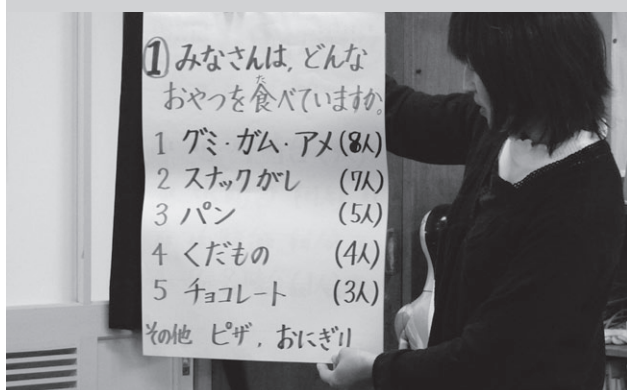 ① みなさんは、どんな
おやつを食べていますか。
1 グミ・ガム・アメ(8人)
2 スナックがし (7人)
3 パン (5人)
4 くだもの (4人)
5 チョコレート (3人)
その他 ピザ、おにぎり